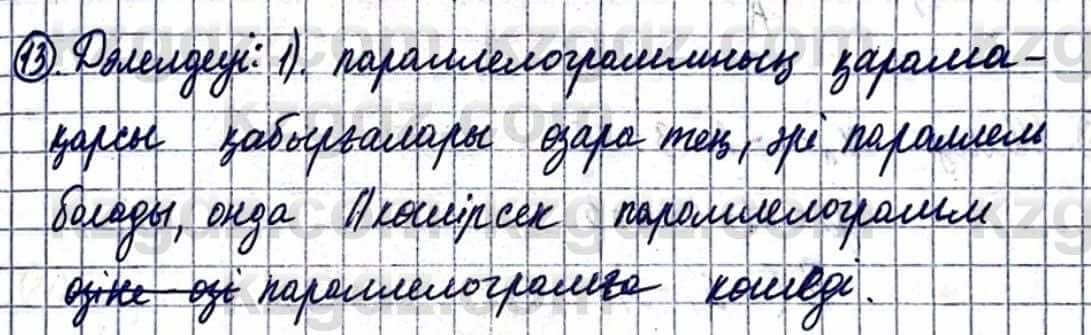 13. Дәлелдеуі: 1). параллелограммның қарама-
қарсы қабырғалары өзара тең, әрі параллель
болады, онда || көшірсек параллелограмм
өзіне өзі параллелограмға көшеді.